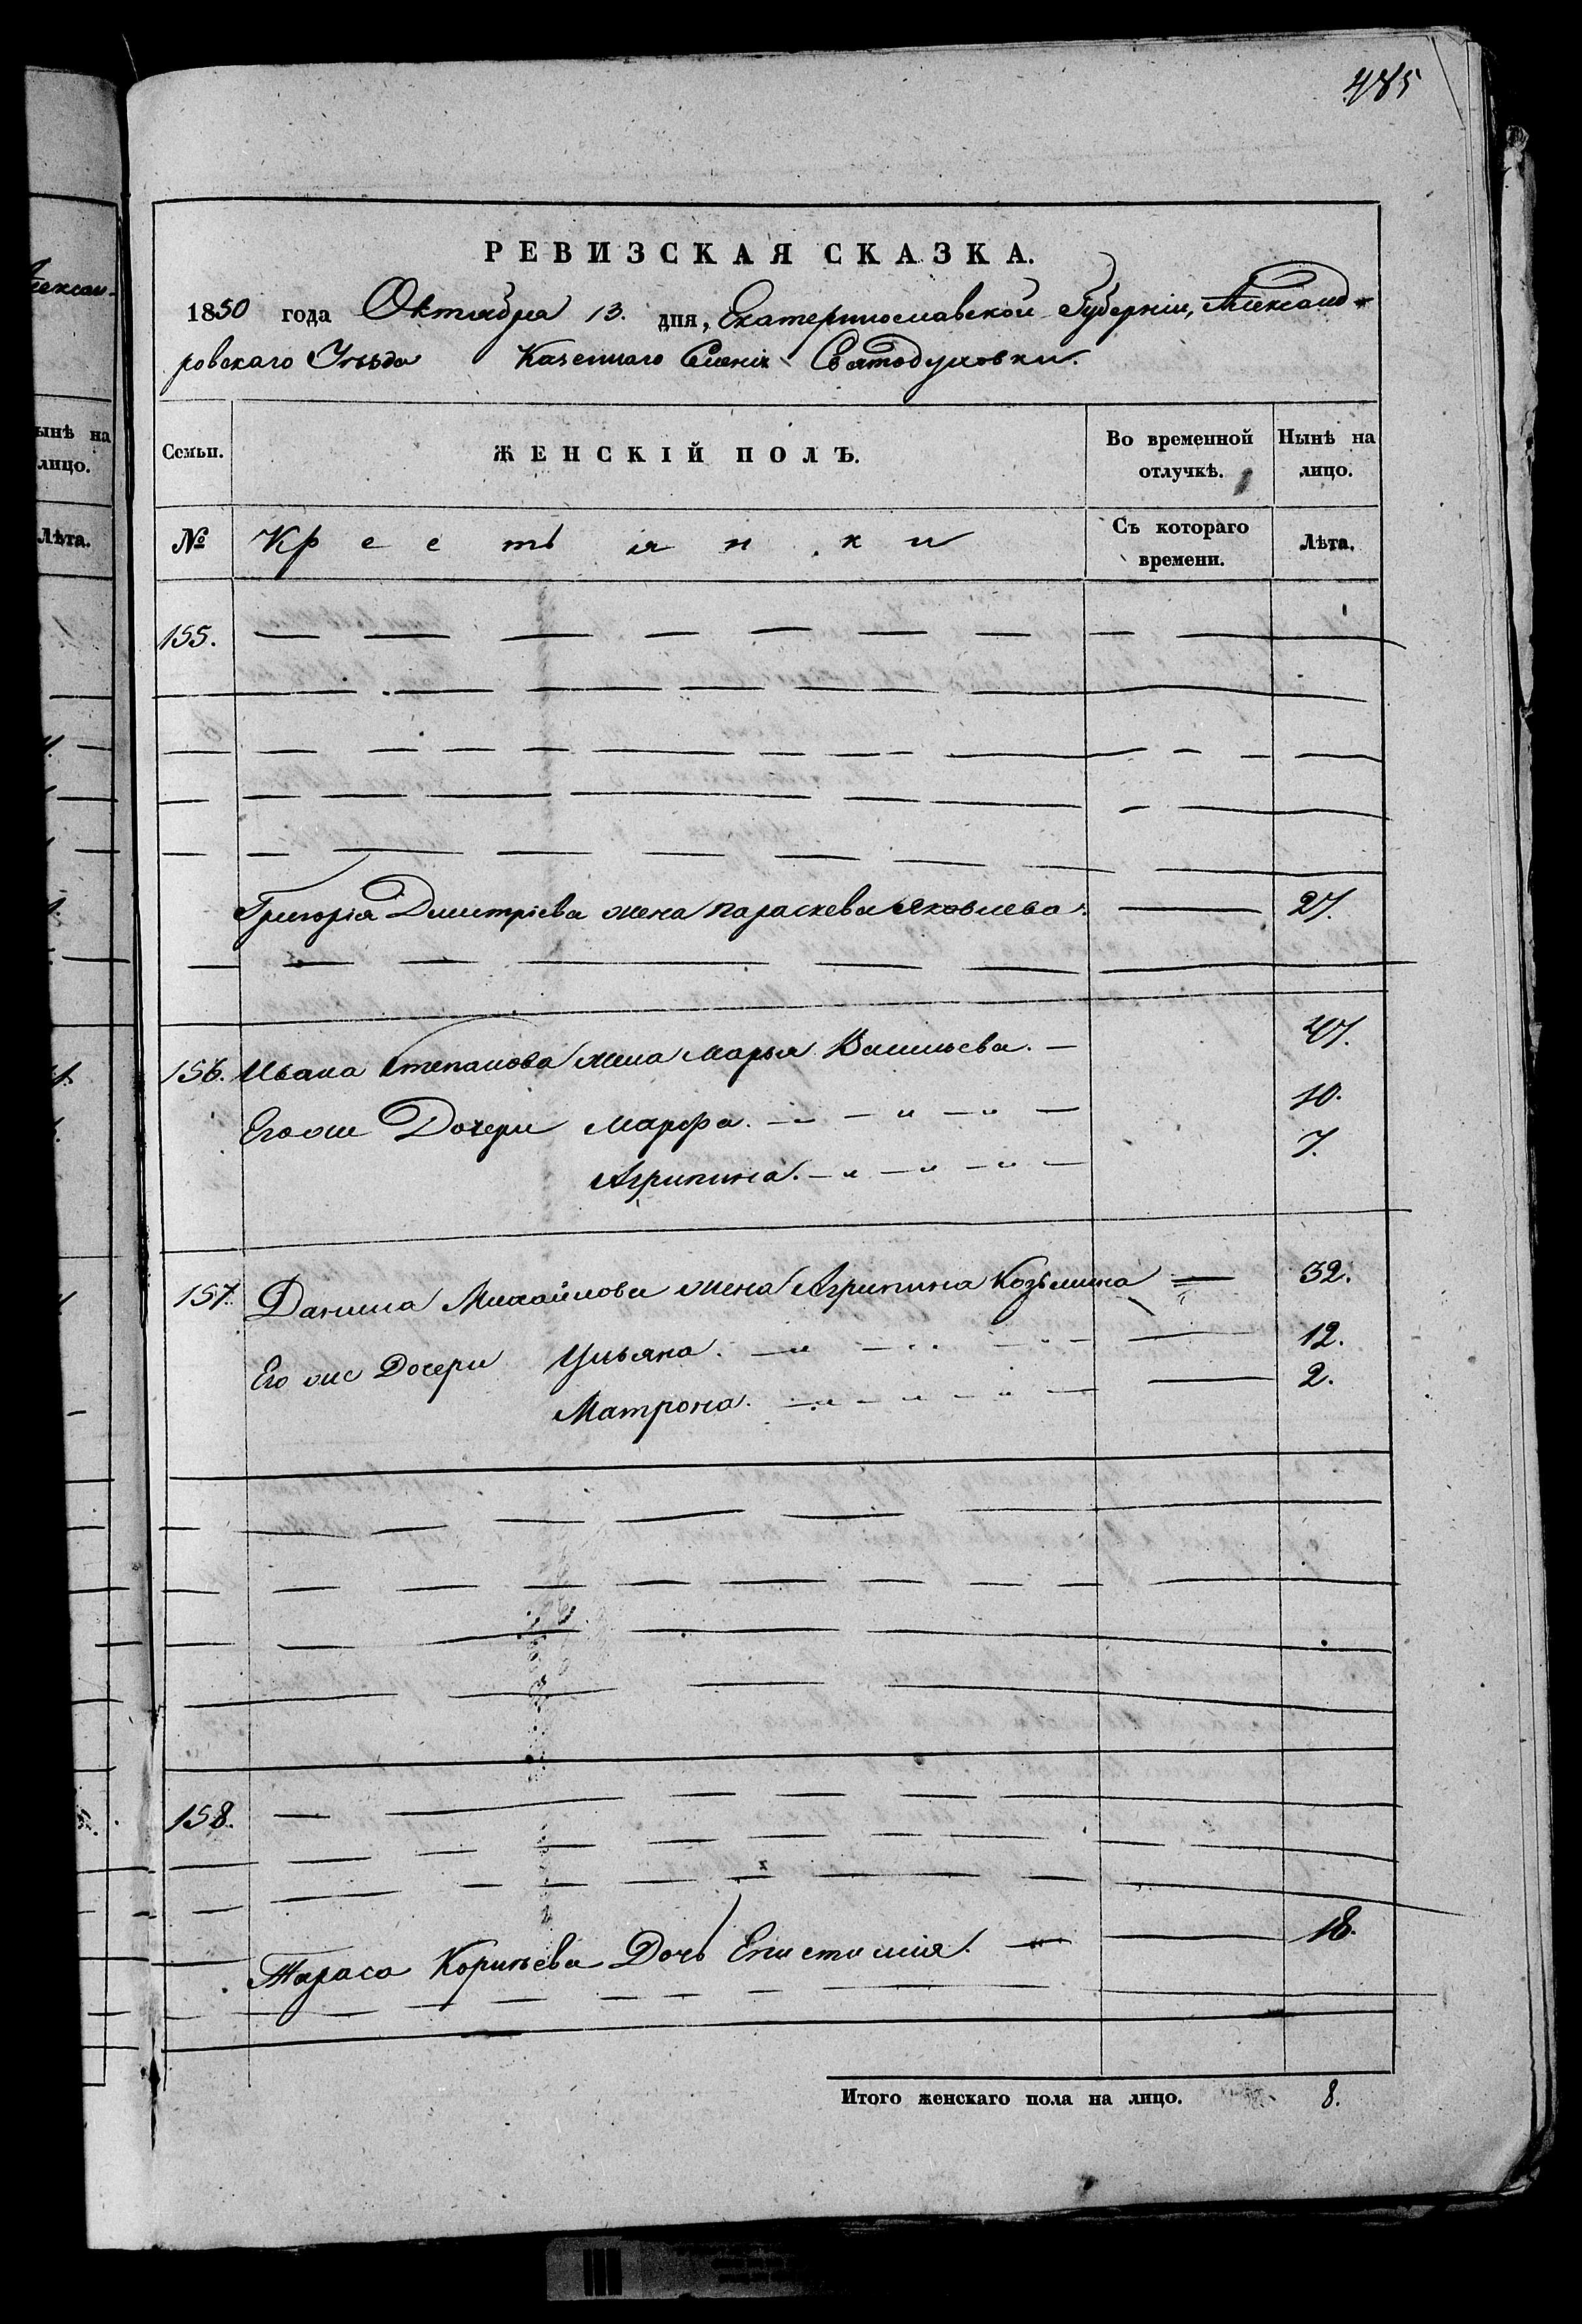 485
РЕВИЗСКАЯ СКАЗКА.
1850 года Октября 13. дня, Екатеринославской Губерніи, Александ-
ровскаго Уѣзда Казеннаго Селенія Святодуховки.
Семьи. ЖЕНСКІЙ ПОЛЪ. Во временной отлучкѣ. Нынѣ на лицо.
№ Крестьянки Съ котораго времени. Лѣта.
155.
Григорія Дмитріева жена Параскева Яковлева. 27.
156. Ивана Степанова жена Марья Васильева. 47.
Его же Дочери Марфа. 10.
Агрипина. 7.
157. Данила Михайлова жена Агрипина Козьмина 32.
Его же Дочери Ульяна. 12.
Матрона. 2.
158.
Тараса Корнѣева Дочь 18.
Итого женскаго пола на лицо. 8.
Алексан-
ынѣ на
лицо.
Лѣта.